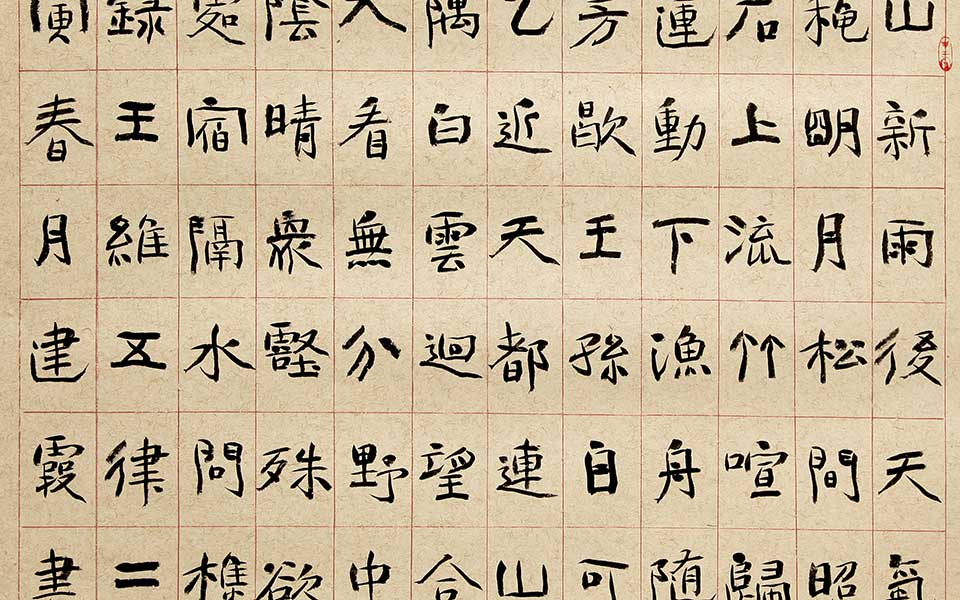 山新雨後天氣
穐明月松間照
石上流竹喧歸
蓮動下漁舟随
芳歇王孫自可
乙近天都連山
隅白雲迴望合
入看無分野中
陰晴衆壑殊欲
處宿隔水問樵
録王維五律二
寅春月建霞書